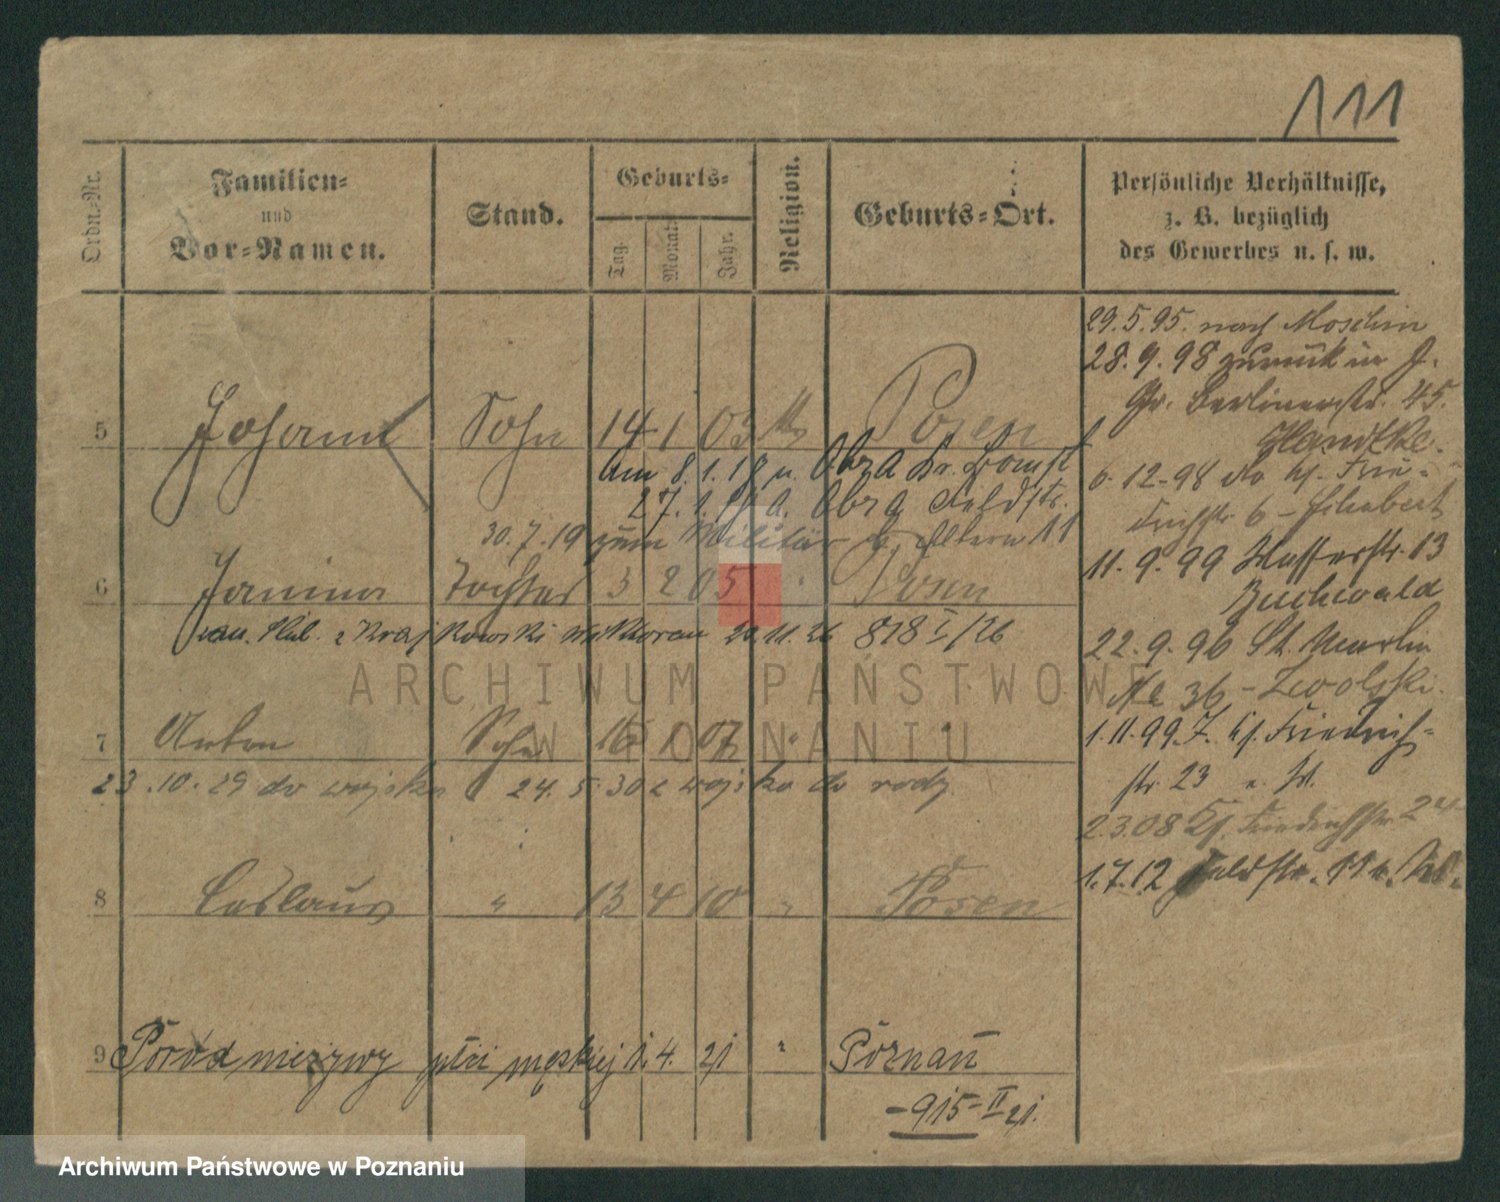 111
Ordn.-Nr.
Familien-
und
Vor-Namen.
Stand.
Geburts-
Tag.
Monat.
Jahr.
Religion.
Geburts-Ort.
Persönliche Verhältnisse,
z. B. bezüglich
des Gewerbes u. s. w.
29.5.95. nach Moschin
28.9.98 zurück in
Gr. Berlinerstr. 45.
Handtke.
6.12.98
6 - Schubert
11.9.99 Wasserstr. 13
Buchwald
22.9.96 St. Martin
No 36 -
1.11.99. Friedrich-
str. 23
2.3.08 Friedrichstr. 24
1.7.12 Feldstr. 11
5 Johann Sohn 14 1 03 Posen
am 8.1.18 n. Obra Kr. Bomst
27.1. Obra Feldstr.
30.7.19 zum Militär Eltern 11
6 Janina Tochter 3 2 05 " Posen
Krajkowski Wiktorem 20.11.26 878 I/26
7 Anton Sohn 16 1 07 " "
23.10.29 do wojska 24.5.30 z wojska do rodz.
8 Ceslaus " 13 4 10 " Posen
9 Poród nieżywy płci męskiej 1. 4. 21 " Poznań
-915-II 21.
ARCHIWUM PAŃSTWOWE
W POZNANIU
Archiwum Państwowe w Poznaniu